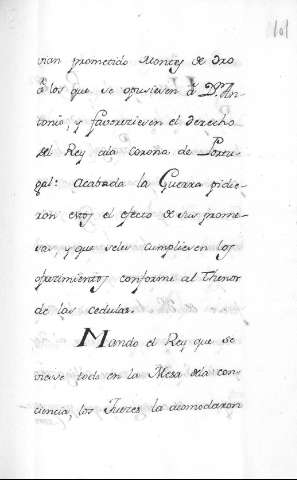 101
vian prometido Montes de oro
â los que se opusiesen â Dn. An-
tonio, y favoreciesen el derecho
del Rey ála Corona de Portu-
gal: Acabada la Guerra pidie-
ron estos el efecto de sus prome-
sas, y que seles cumpliesen los
ofrecimientos conforme al Thenor
de las cedulas.
Mando el Rey que se
viese todo en la Mesa dela con-
ciencia, los Jueces la acomodaron